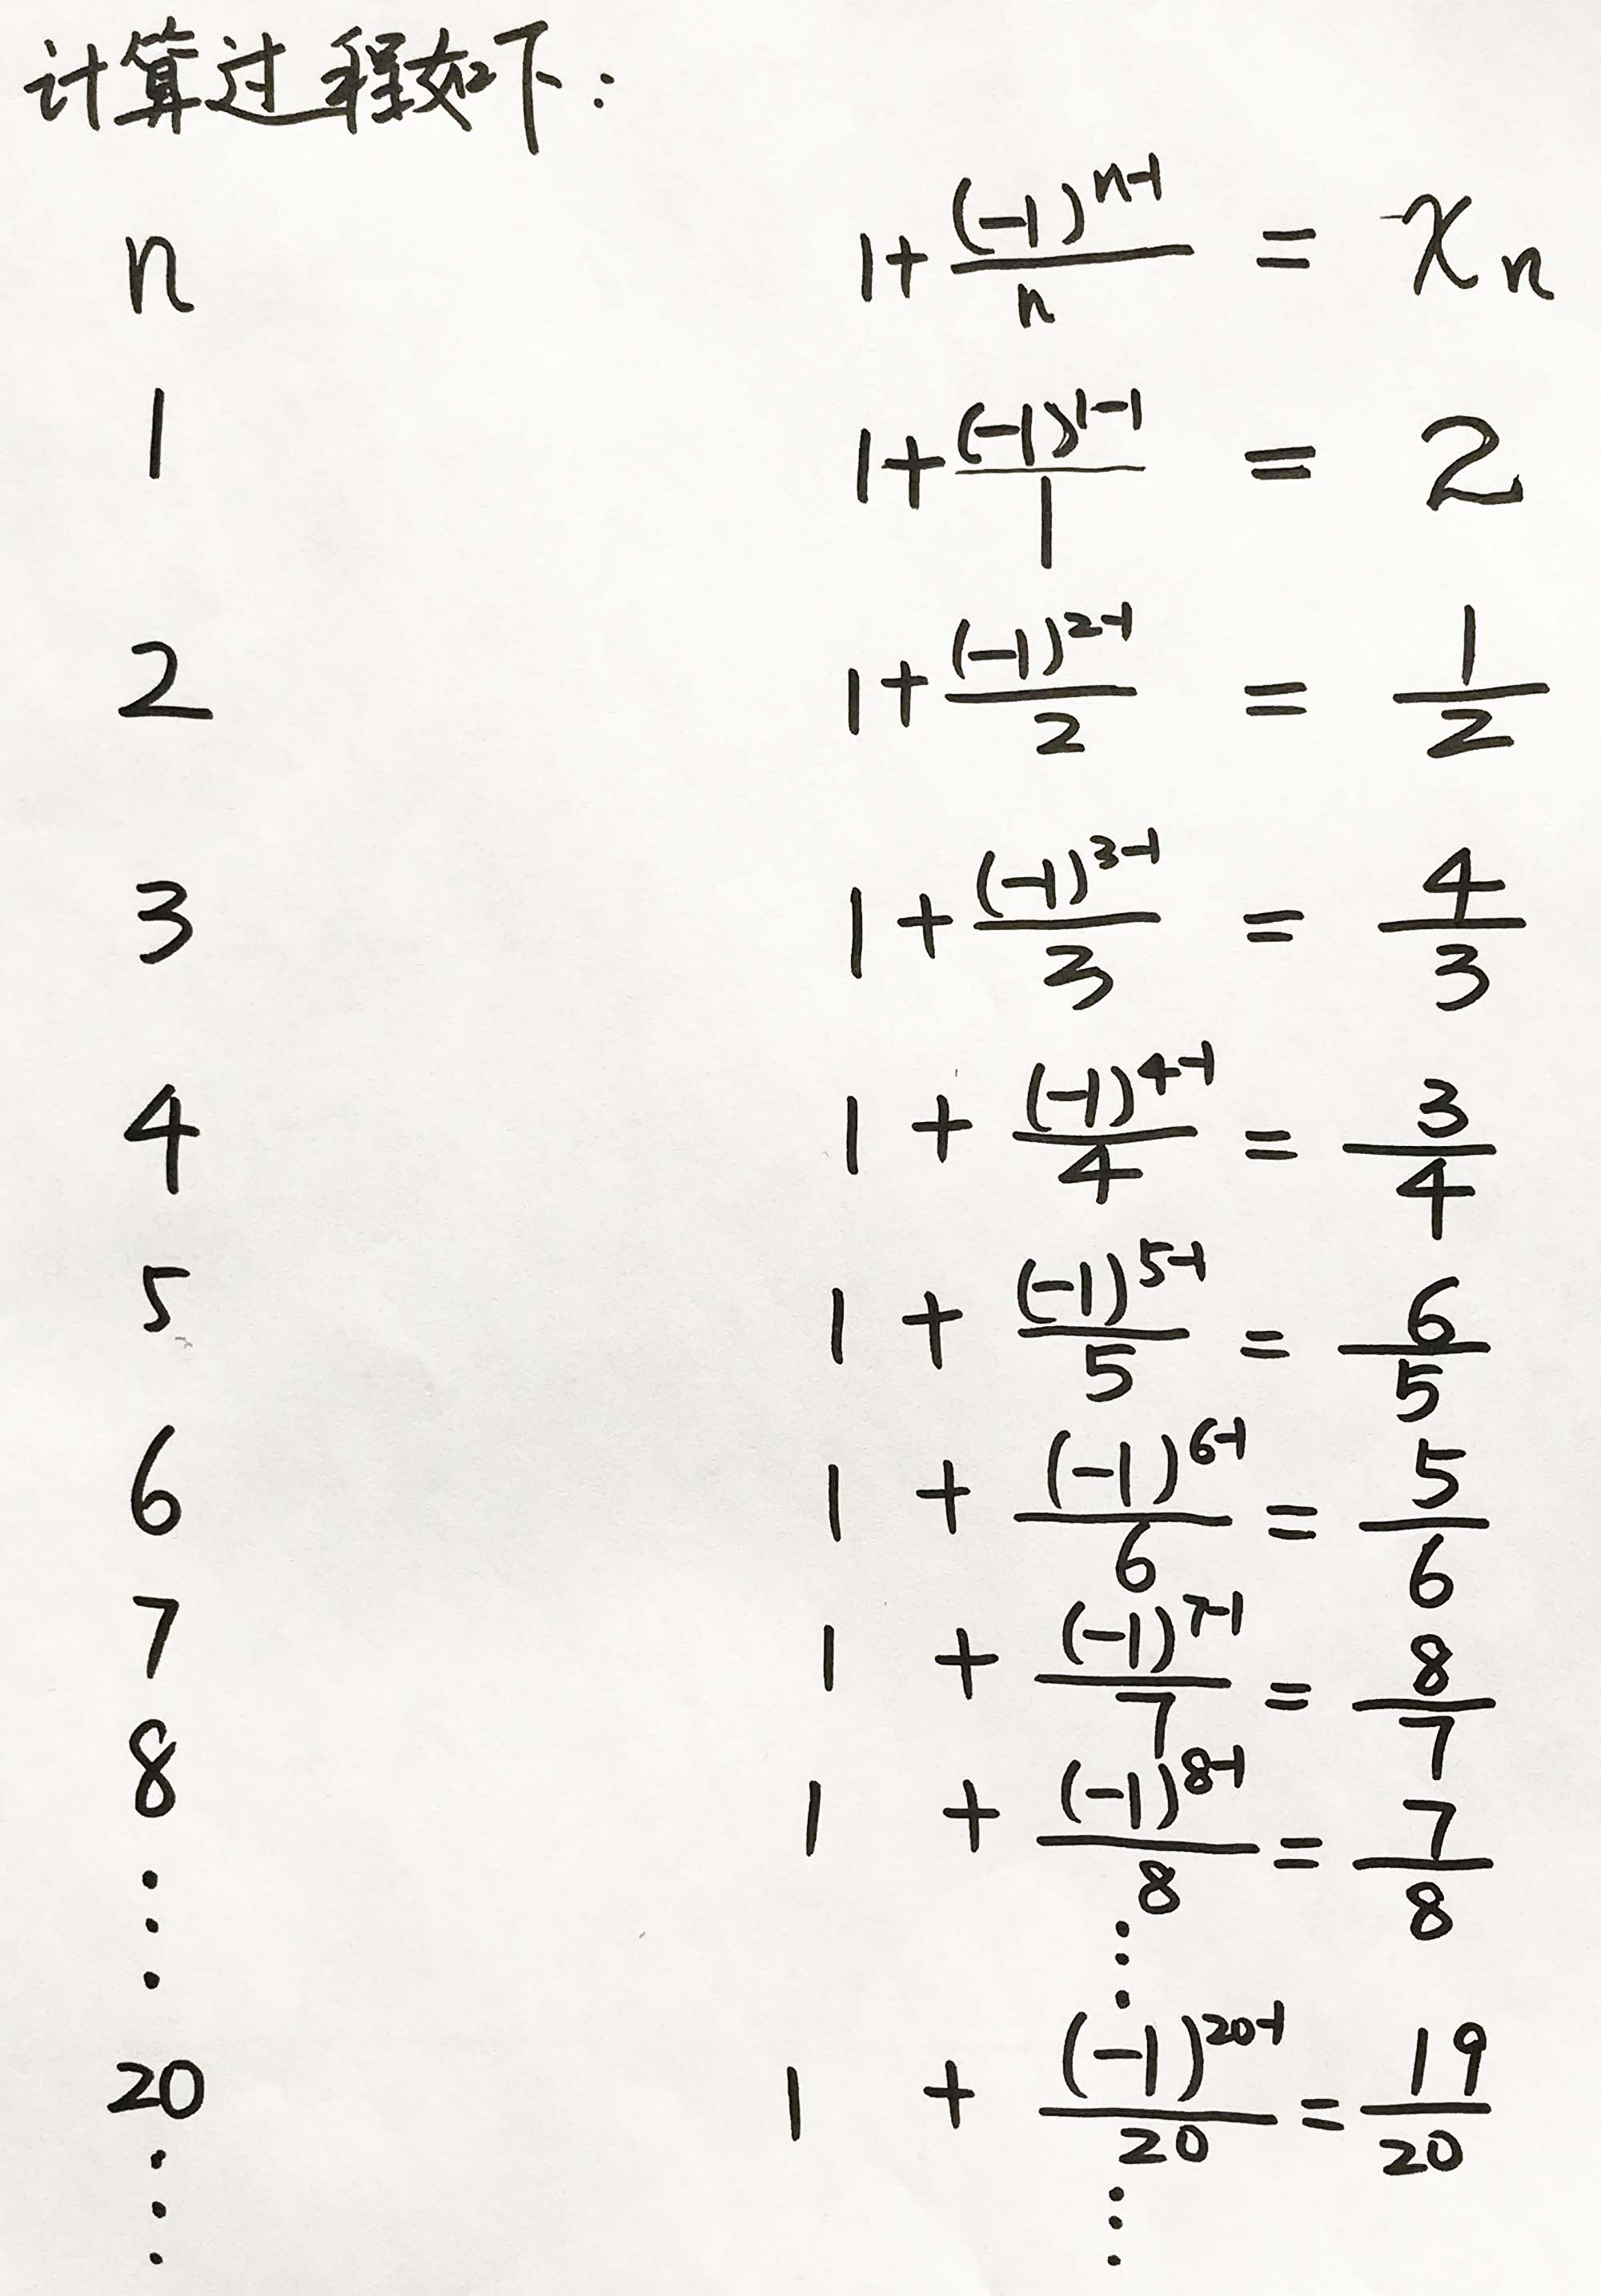 计算过程如下：
n 1+\frac{(-1)^{n-1}}{n} = x_n
1 1+\frac{(-1)^{1-1}}{1} = 2
2 1+\frac{(-1)^{2-1}}{2} = \frac{1}{2}
3 1+\frac{(-1)^{3-1}}{3} = \frac{4}{3}
4 1+\frac{(-1)^{4-1}}{4} = \frac{3}{4}
5 1+\frac{(-1)^{5-1}}{5} = \frac{6}{5}
6 1+\frac{(-1)^{6-1}}{6} = \frac{5}{6}
7 1+\frac{(-1)^{7-1}}{7} = \frac{8}{7}
8 1+\frac{(-1)^{8-1}}{8} = \frac{7}{8}
⋮ ⋮
20 1+\frac{(-1)^{20-1}}{20} = \frac{19}{20}
⋮ ⋮